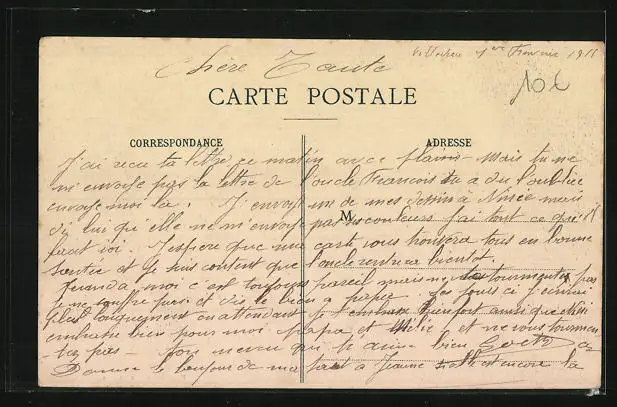 1er Février 1911
10€
Chère Tante
CARTE POSTALE
CORRESPONDANCE
ADRESSE
J'ai reçu ta lettre ce matin avec plaisir - Mais tu ne
m'envoye pas la lettre de l'oncle François tu a du l'oublié
envoye moi la. J'envoye un de mes dessin à Ninie mais
dis lui qu'elle ne m'envoye pas des couleurs j'ai tout ce qu'il
M
faut ici. J'espère que ma carte vous trouvera tous en bonne
santée et je suis content que l'oncle rentrera bientot.
Quand a moi c'est toujours pareil mais ne tourmente pas
je ne souffre pas et dis le bien a pepee. Ces jours ci j'écrirai
plus longuement en attendant je t'embrasse bien fort ainsi que Nini
embrasse bien pour moi papa et et ne vous tourmen
tez pas - ton neveu qui t'aime bien
Donne le bonjour de ma part a Jeanne si elle est encore la